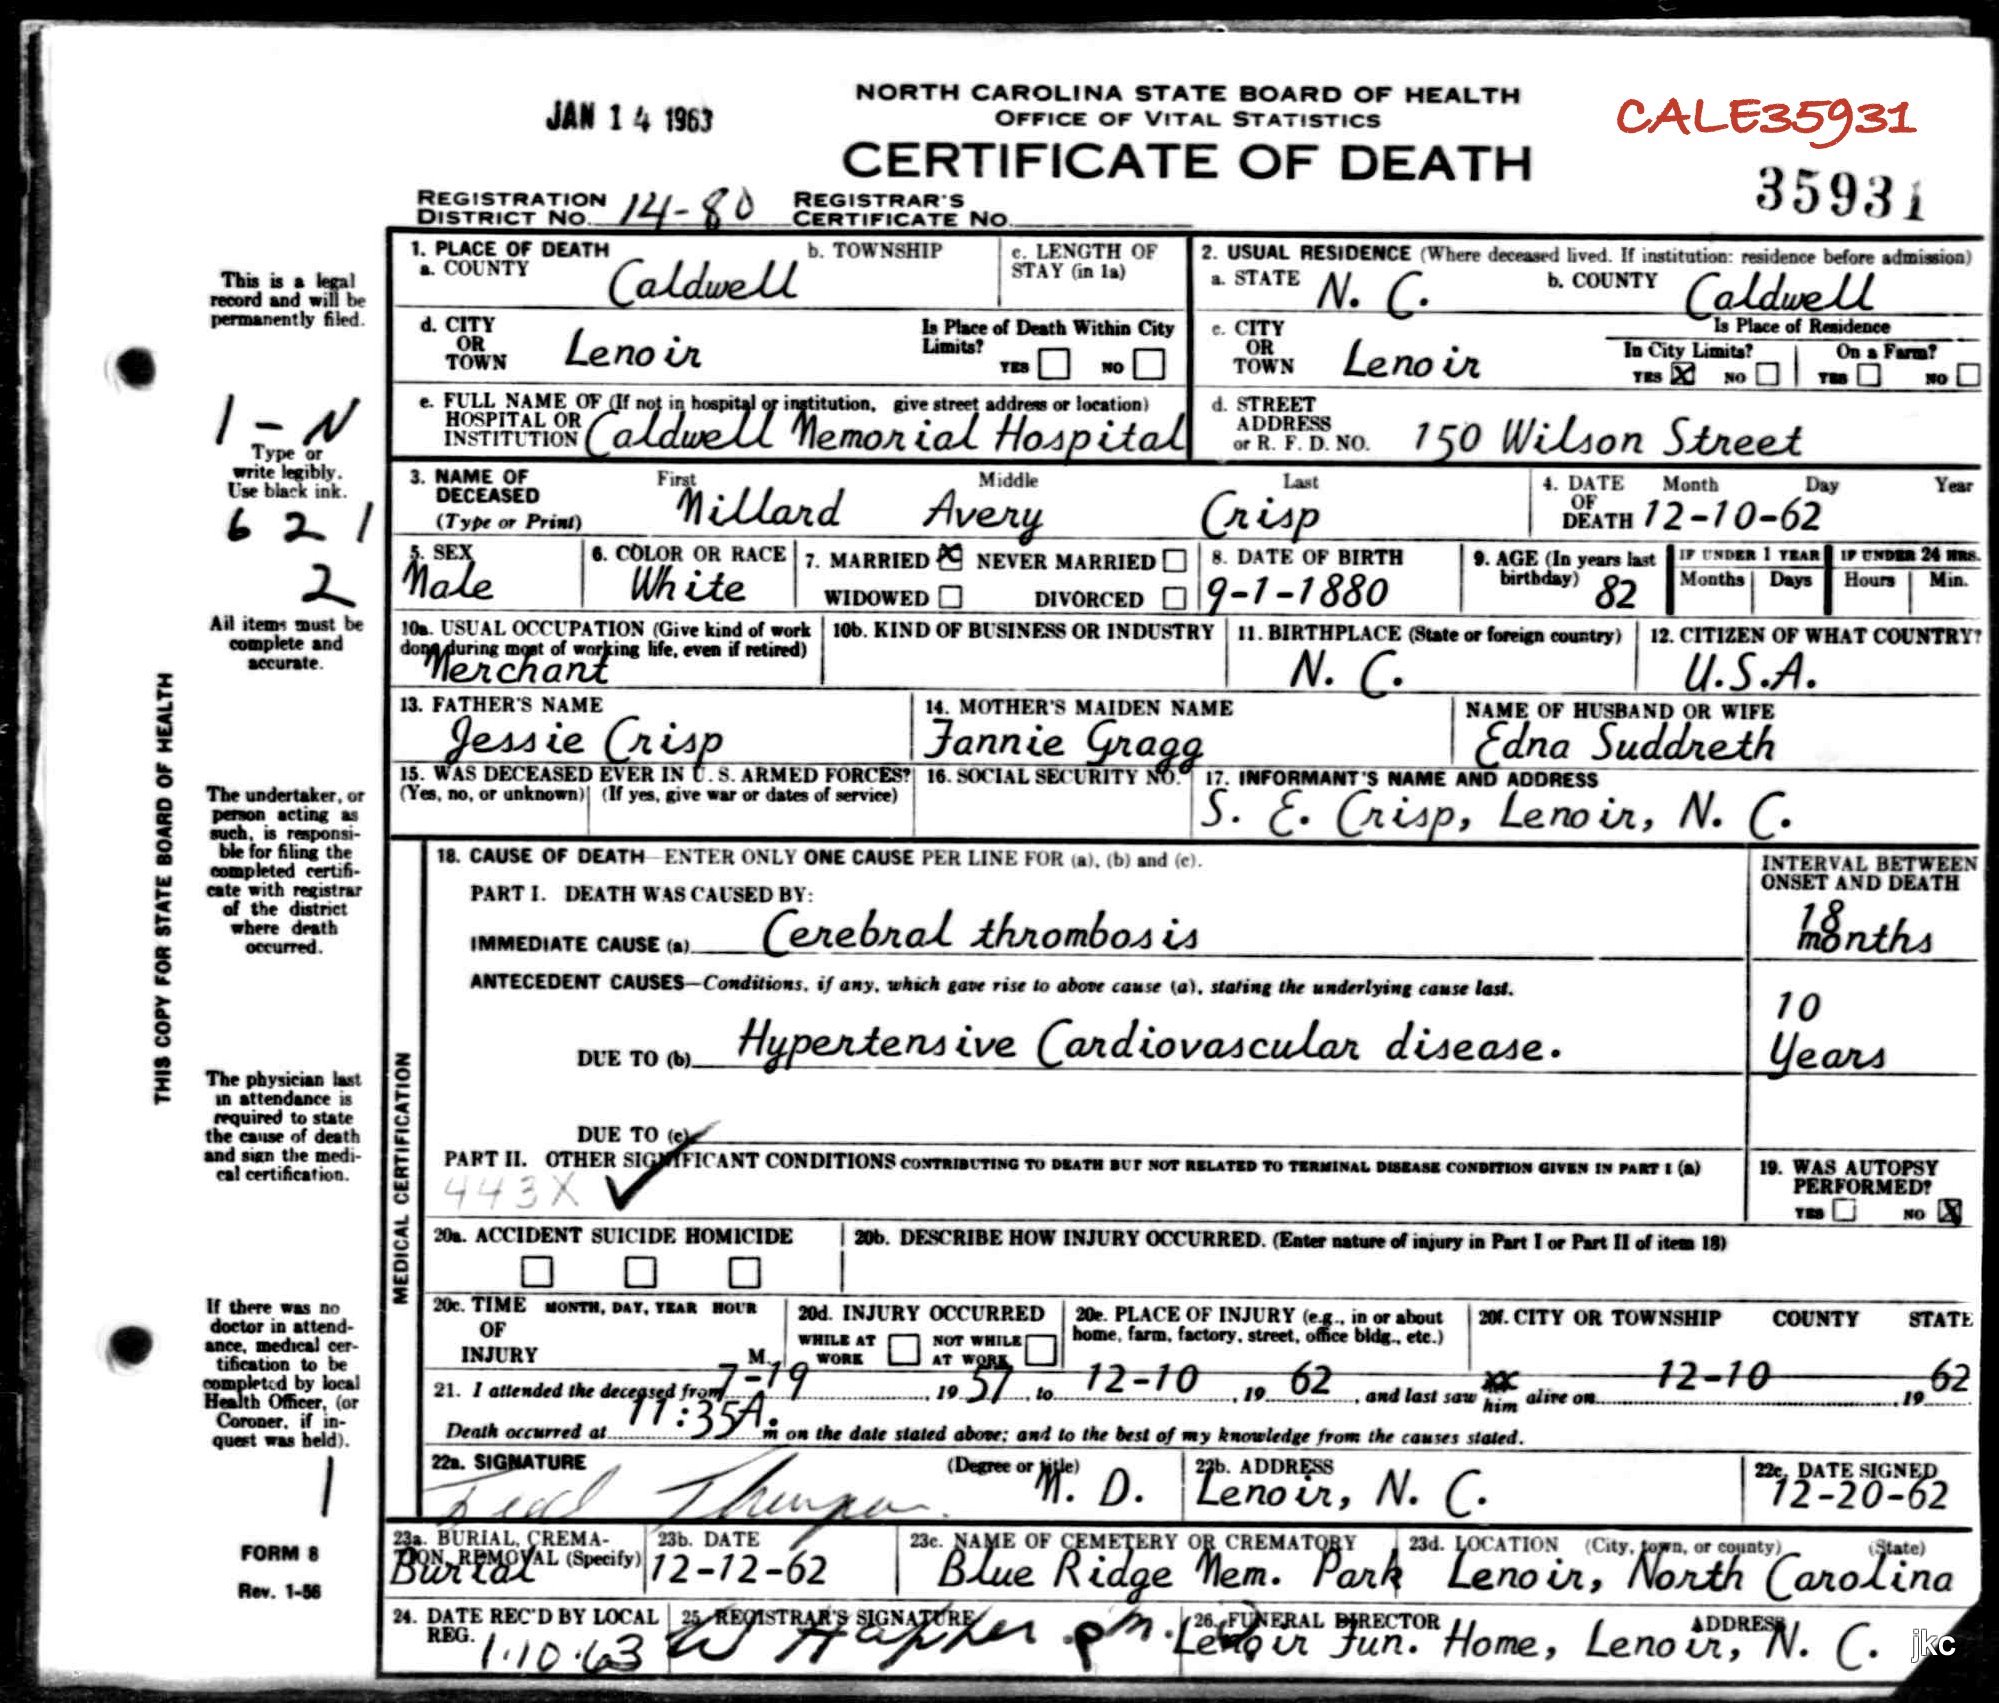 NORTH CAROLINA STATE BOARD OF HEALTH
JAN 14 1963
OFFICE OF VITAL STATISTICS
CALE35931
CERTIFICATE OF DEATH
35931
REGISTRATION DISTRICT NO. 14-80 REGISTRAR'S CERTIFICATE NO.
1. PLACE OF DEATH
a. COUNTY Caldwell
b. TOWNSHIP
c. LENGTH OF STAY (in 1a)
2. USUAL RESIDENCE (Where deceased lived. If institution: residence before admission)
a. STATE N. C.
b. COUNTY Caldwell
d. CITY OR TOWN Lenoir
Is Place of Death Within City Limits? YES NO
c. CITY OR TOWN Lenoir
Is Place of Residence
In City Limits? YES X NO
On a Farm? YES NO
e. FULL NAME OF (If not in hospital or institution, give street address or location)
HOSPITAL OR INSTITUTION Caldwell Memorial Hospital
d. STREET ADDRESS or R. F. D. NO. 150 Wilson Street
3. NAME OF DECEASED (Type or Print)
First Middle Last
Millard Avery Crisp
4. DATE OF DEATH Month Day Year
12-10-62
5. SEX
Male
6. COLOR OR RACE
White
7. MARRIED X NEVER MARRIED
WIDOWED DIVORCED
8. DATE OF BIRTH
9-1-1880
9. AGE (In years last birthday) 82
IF UNDER 1 YEAR
Months Days
IF UNDER 24 HRS.
Hours Min.
10a. USUAL OCCUPATION (Give kind of work done during most of working life, even if retired)
Merchant
10b. KIND OF BUSINESS OR INDUSTRY
11. BIRTHPLACE (State or foreign country)
N. C.
12. CITIZEN OF WHAT COUNTRY?
U.S.A.
13. FATHER'S NAME
Jessie Crisp
14. MOTHER'S MAIDEN NAME
Fannie Gragg
NAME OF HUSBAND OR WIFE
Edna Suddreth
15. WAS DECEASED EVER IN U. S. ARMED FORCES?
(Yes, no, or unknown) (If yes, give war or dates of service)
16. SOCIAL SECURITY NO.
17. INFORMANT'S NAME AND ADDRESS
S. E. Crisp, Lenoir, N. C.
MEDICAL CERTIFICATION
18. CAUSE OF DEATH—ENTER ONLY ONE CAUSE PER LINE FOR (a), (b) and (c).
INTERVAL BETWEEN ONSET AND DEATH
PART I. DEATH WAS CAUSED BY:
IMMEDIATE CAUSE (a) Cerebral thrombosis
18 months
ANTECEDENT CAUSES—Conditions, if any, which gave rise to above cause (a), stating the underlying cause last.
DUE TO (b) Hypertensive Cardiovascular disease.
10 Years
DUE TO (c)
PART II. OTHER SIGNIFICANT CONDITIONS CONTRIBUTING TO DEATH BUT NOT RELATED TO TERMINAL DISEASE CONDITION GIVEN IN PART I (a)
443X
19. WAS AUTOPSY PERFORMED?
YES NO X
20a. ACCIDENT SUICIDE HOMICIDE
20b. DESCRIBE HOW INJURY OCCURRED. (Enter nature of injury in Part I or Part II of item 18)
20c. TIME OF INJURY MONTH, DAY, YEAR HOUR M.
20d. INJURY OCCURRED
WHILE AT WORK NOT WHILE AT WORK
20e. PLACE OF INJURY (e.g., in or about home, farm, factory, street, office bldg., etc.)
20f. CITY OR TOWNSHIP COUNTY STATE
21. I attended the deceased from 7-19, 19 57, to 12-10, 19 62, and last saw him alive on 12-10, 19 62
Death occurred at 11:35A. m on the date stated above; and to the best of my knowledge from the causes stated.
22a. SIGNATURE (Degree or title)
M. D.
22b. ADDRESS
Lenoir, N. C.
22c. DATE SIGNED
12-20-62
23a. BURIAL, CREMATION, REMOVAL (Specify)
Burial
23b. DATE
12-12-62
23c. NAME OF CEMETERY OR CREMATORY
Blue Ridge Mem. Park
23d. LOCATION (City, town, or county) (State)
Lenoir, North Carolina
24. DATE REC'D BY LOCAL REG.
1.10.63
25. REGISTRAR'S SIGNATURE
26. FUNERAL DIRECTOR ADDRESS
Lenoir Fun. Home, Lenoir, N. C.
jkc
THIS COPY FOR STATE BOARD OF HEALTH
This is a legal
record and will be
permanently filed.
1-N
Type or
write legibly.
Use black ink.
6 2 1
2
All items must be
complete and
accurate.
The undertaker, or
person acting as
such, is responsi-
ble for filing the
completed certifi-
cate with registrar
of the district
where death
occurred.
The physician last
in attendance is
required to state
the cause of death
and sign the medi-
cal certification.
If there was no
doctor in attend-
ance, medical cer-
tification to be
completed by local
Health Officer, (or
Coroner, if in-
quest was held).
1
FORM 8
Rev. 1-56